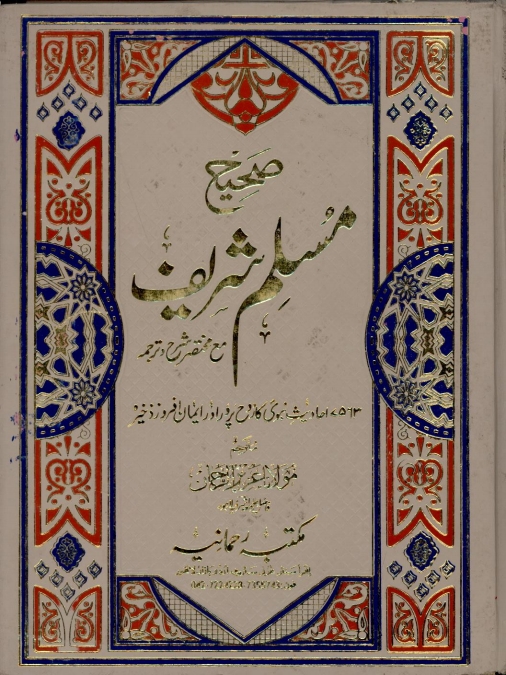 صحیح
مسلم شریف
مع مختصر شرح و ترجمہ
۷۵۶۳ احادیث نبوی کا روح پرور اور ایمان افروز ذخیرہ
مولانا عزیز الرحمان
مکتبہ رحمانیہ